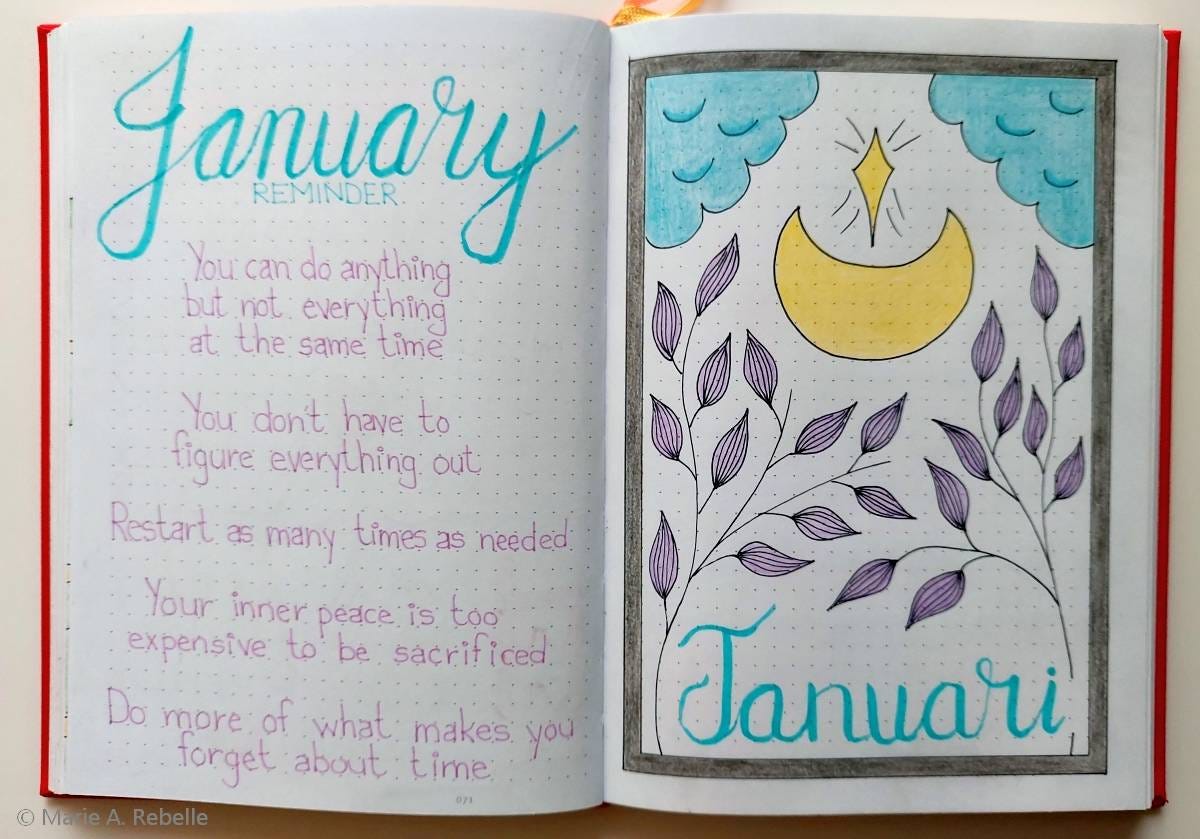 January
REMINDER
You can do anything
but not everything
at the same time
You don't have to
figure everything out
Restart as many times as needed.
Your inner peace is too
expensive to be sacrificed
Do more of what makes you
forget about time
071
Januari
© Marie A. Rebelle